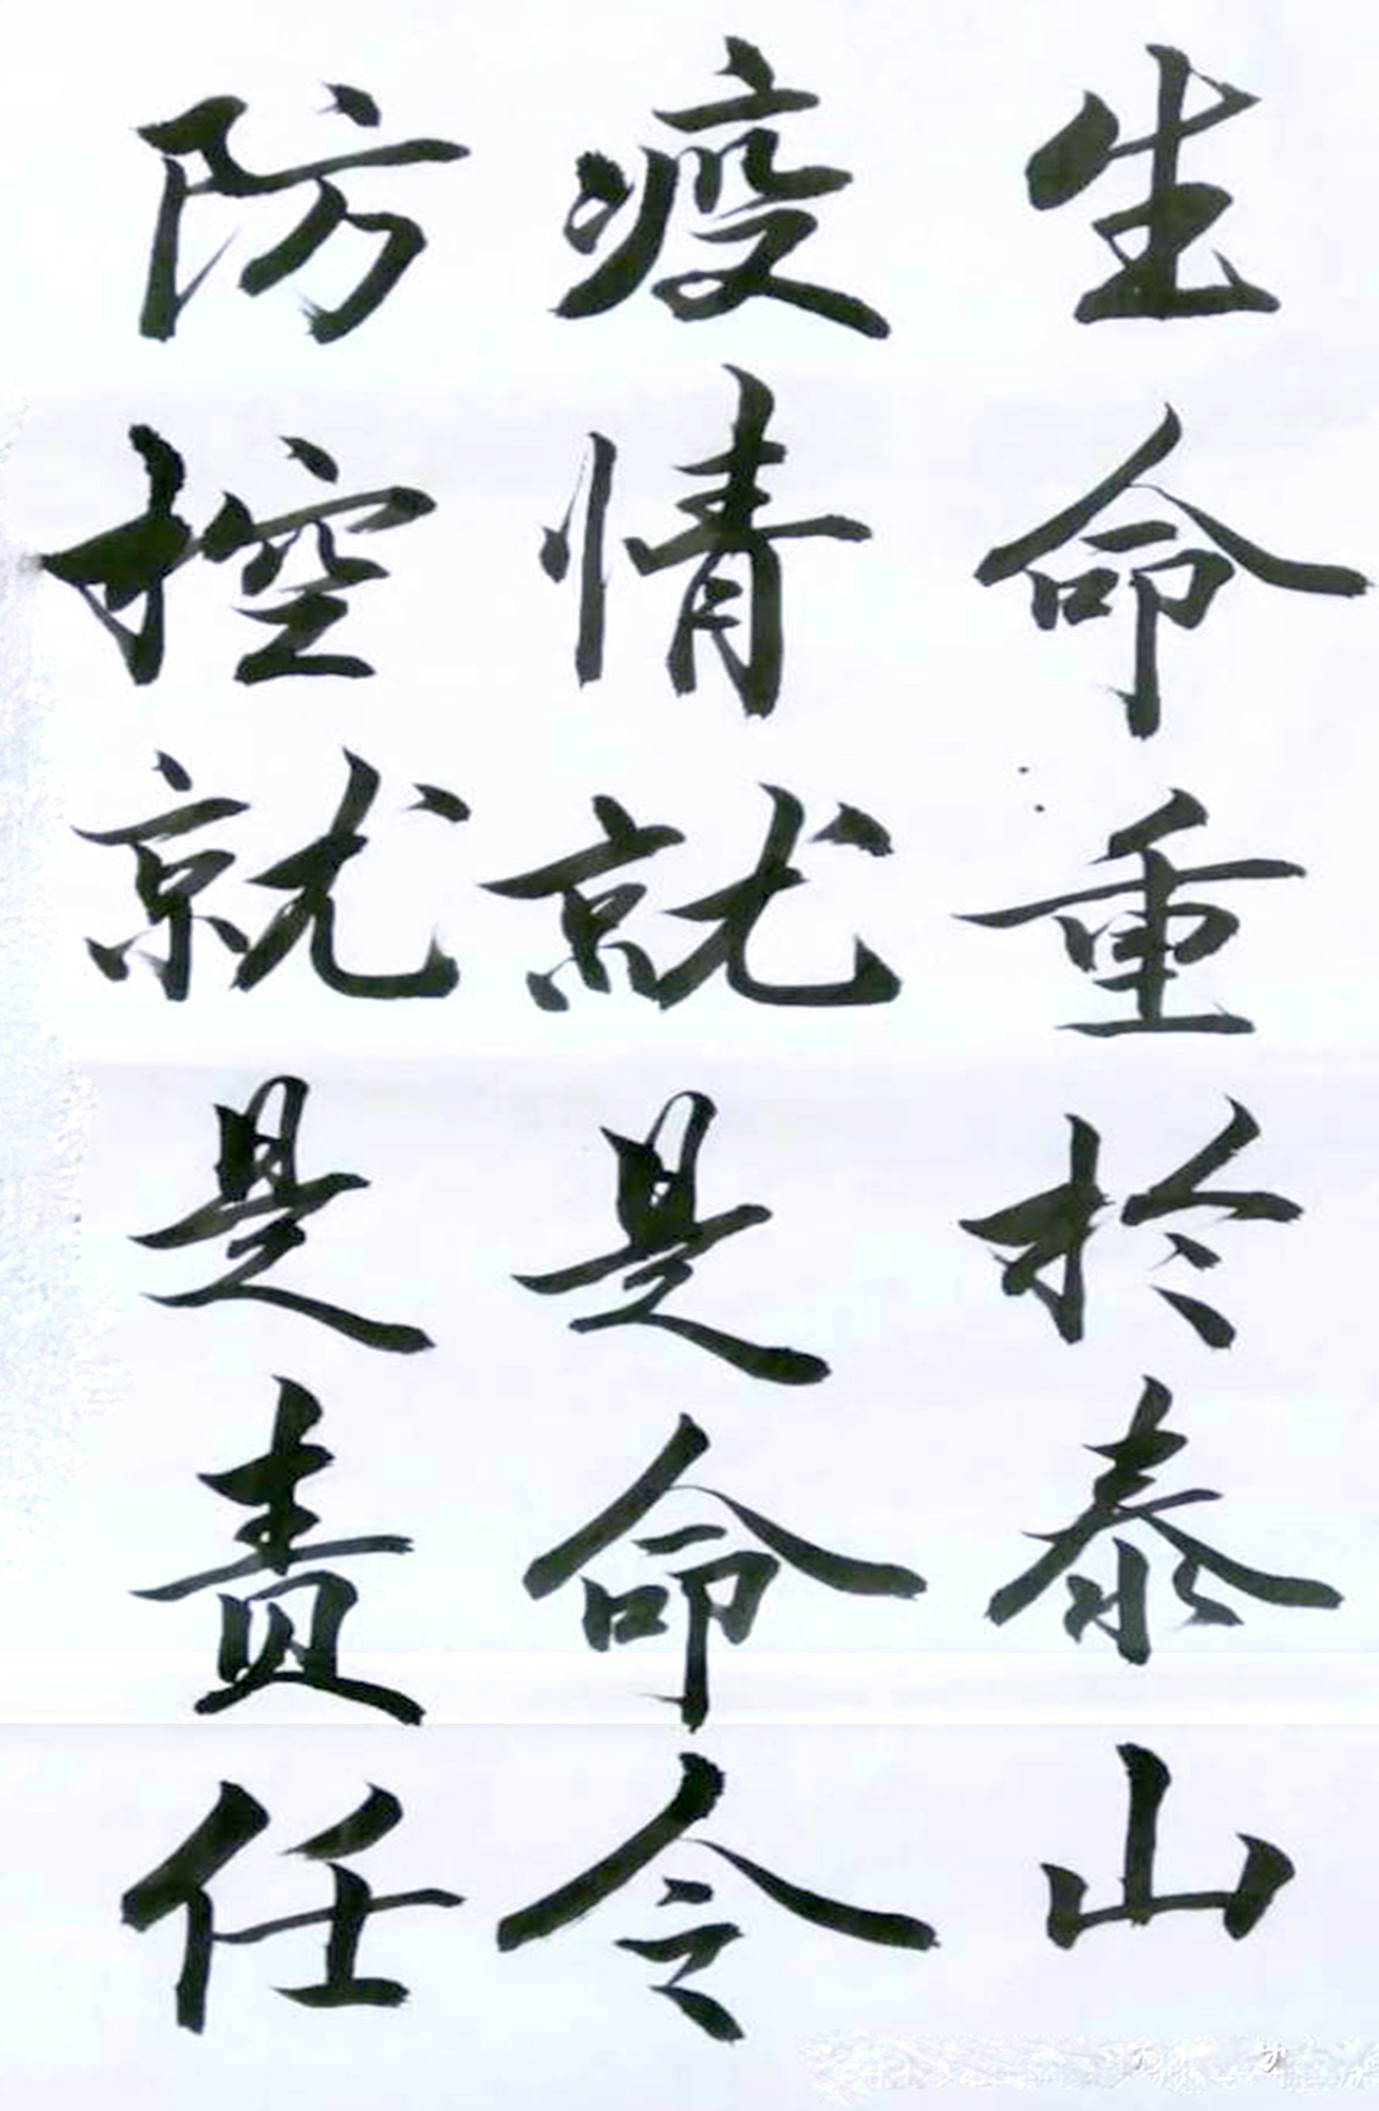 生命重於泰山
疫情就是命令
防控就是责任